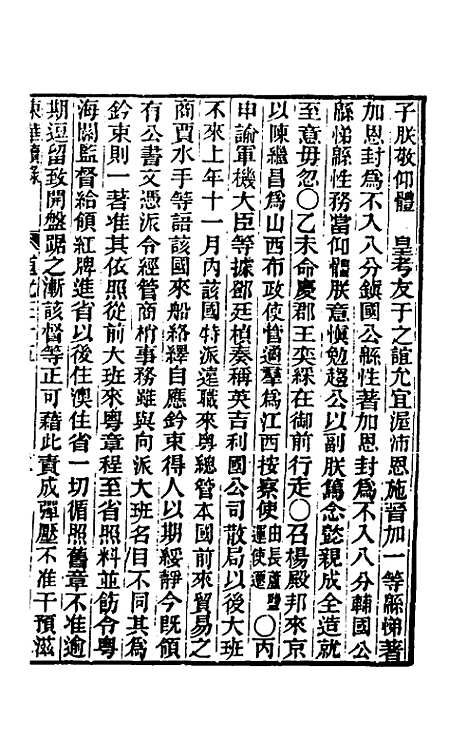 子朕敬仰體　皇考友于之誼允宜渥沛恩施晉加一等緜悌著
加恩封爲不入八分鎮國公緜性著加恩封爲不入八分輔國公
緜悌緜性務當仰體朕意愼勉趨公以副朕篤念懿親成全造就
至意毋忽〇乙未命慶郡王奕綵在御前行走〇召楊殿邦來京
以陳繼昌爲山西布政使管遹羣爲江西按察使由長蘆鹽運使遷〇丙
申諭軍機大臣等據鄧廷楨奏稱英吉利國公司散局以後大班
不來上年十一月內該國特派遠職來粵總管本國前來貿易之
商賈水手等語該國來船絡繹自應鈐束得人以期綏靜今旣領
有公書文憑派令經管商梢事務雖與向派大班名目不同其爲
鈐束則一著准其依照從前大班來粵章程至省照料並飭令粵
海關監督給領紅牌進省以後住澳住省一切循照舊章不准逾
期逗留致開盤踞之漸該督等正可藉此責成彈壓不准干預滋